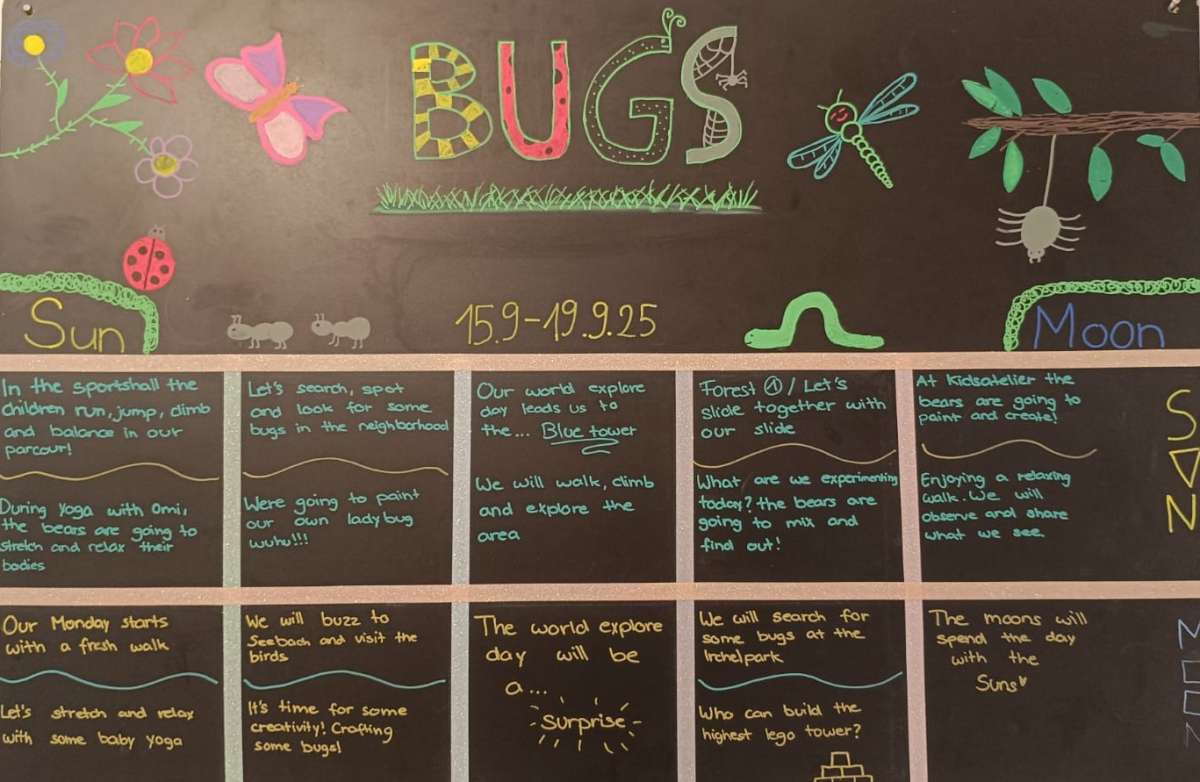 BUGS
Sun
15.9-19.9.25
Moon
In the sportshall the
children run, jump, climb
and balance in our
parcour!
During Yoga with Omi,
the bears are going to
stretch and relax their
bodies
Let's search, spot
and look for some
bugs in the neighborhood
Were going to paint
our own ladybug
wuhu!!!
Our world explore
day leads us to
the... Blue tower
We will walk, climb
and explore the
area
Forest ① / Let's
slide together with
our slide
What are we experimenting
today? the bears are
going to mix and
find out!
At Kidsatelier the
bears are going to
paint and create!
Enjoying a relaxing
walk. We will
observe and share
what we see.
S
U
N
Our Monday starts
with a fresh walk
Let's stretch and relax
with some baby yoga
We will buzz to
Seebach and visit the
birds
It's time for some
creativity! Crafting
some bugs!
The world explore
day will be
a...
Surprise
We will search for
some bugs at the
Irchelpark
Who can build the
highest lego tower?
The moons will
spend the day
with the
Suns
M
O
O
N